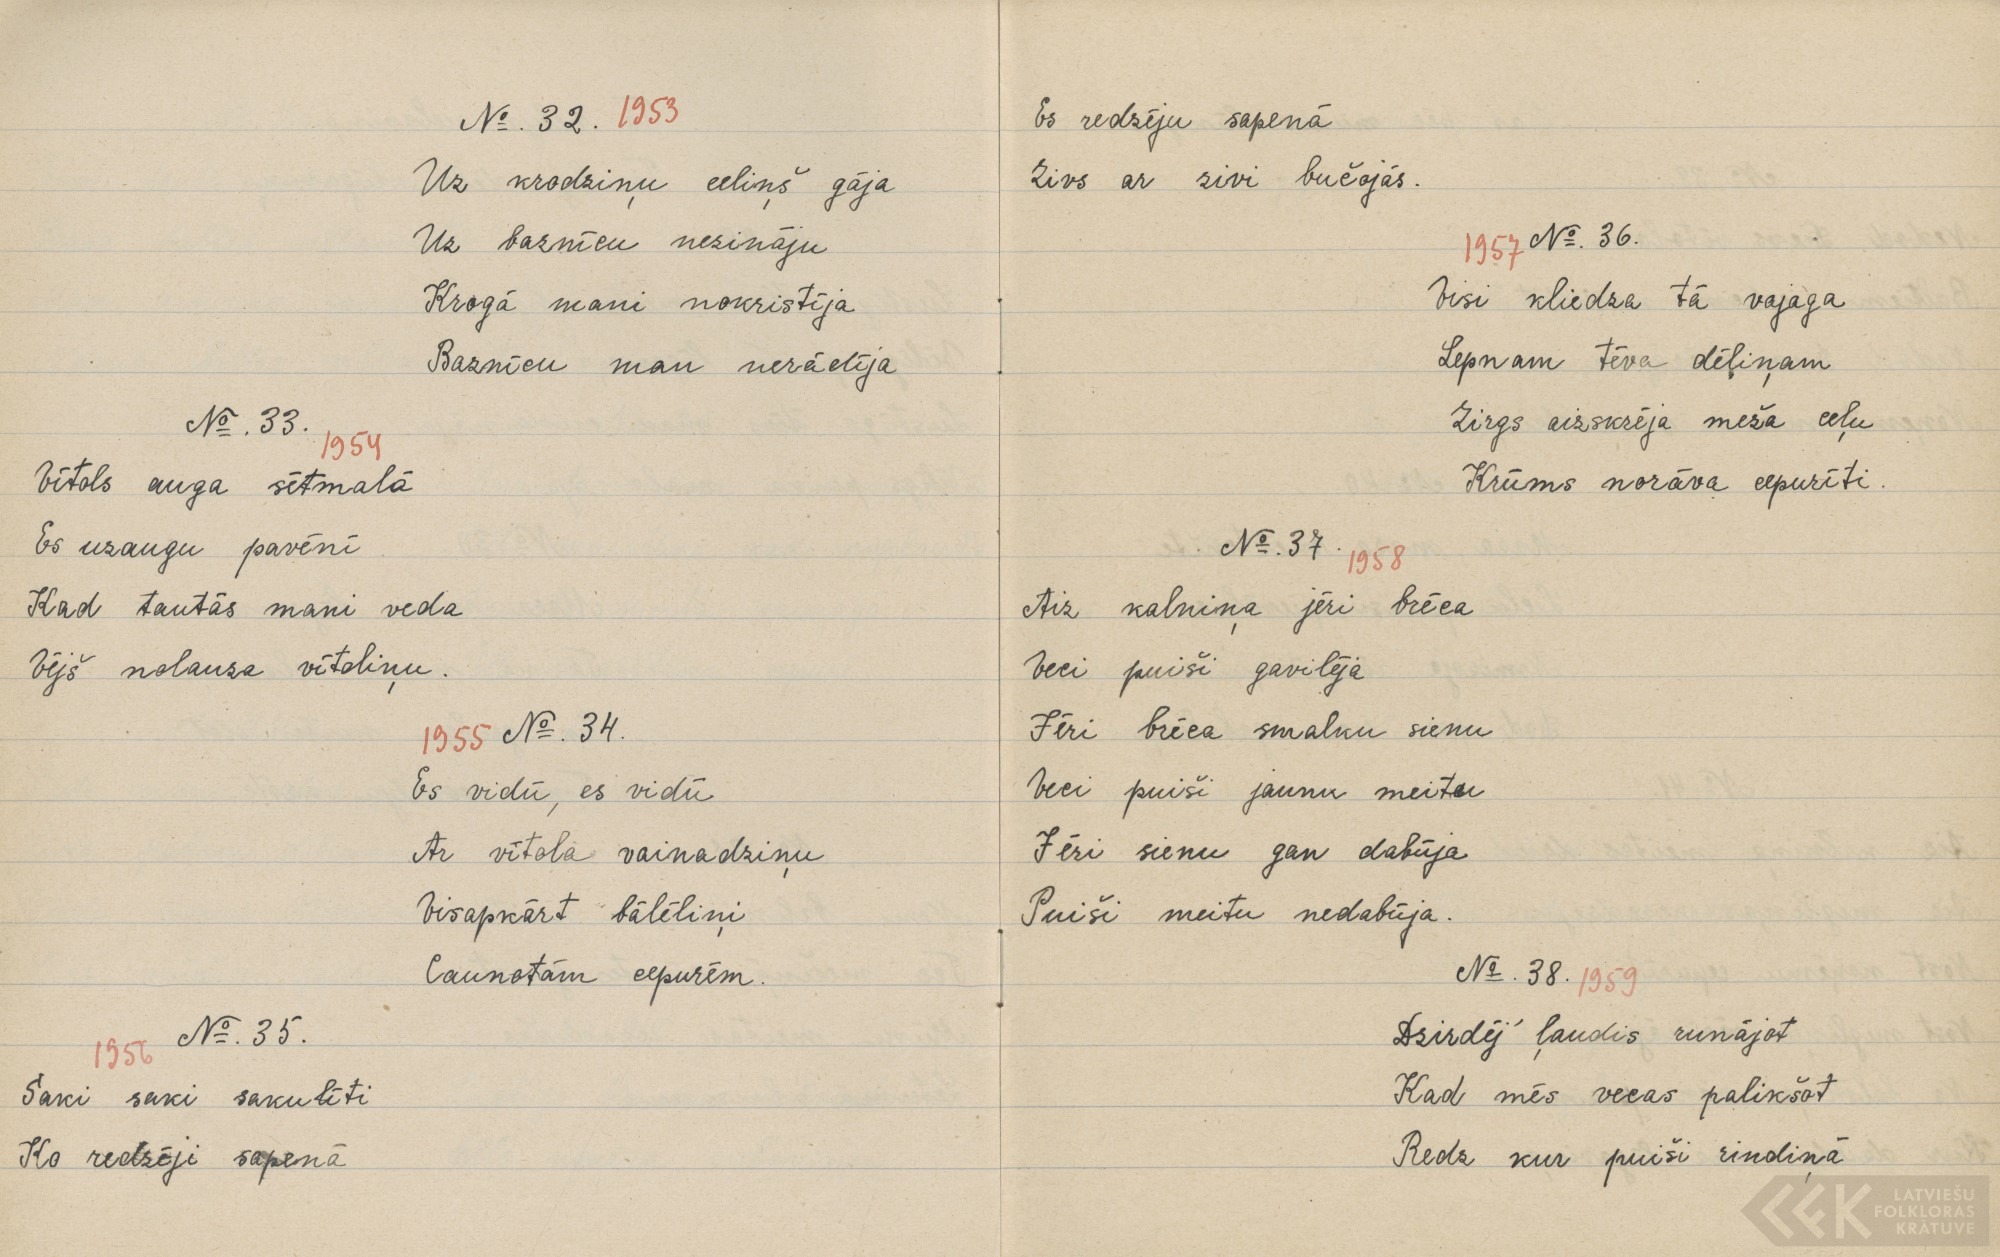 №. 32. 1953
Uz krodziņu celiņš gāja
Uz baznīcu nezināju
Krogā mani nokristīja
Baznīcu man nerādīja
№. 33.
1954
Vītols auga sētmalā
Es uzaugu pavēnī
Kad tautās mani veda
Vējš nolauza vītoliņu.
1955 №. 34.
Es vidū, es vidū
Ar vītola vainadziņu
Visapkārt bālēliņi
Caunotām cepurēm.
1956 №. 35.
Saki saki sakulīti
Ko redzēji sapenā
Es redzēju sapenā
Zivs ar zivi bučojās.
1957 №. 36.
Visi kliedza tā vajaga
Lepnam tēva dēliņam
Zirgs aizskrēja meža ceļu
Krūms norāva cepurīti.
№. 37. 1958
Aiz kalniņa jēri brēca
Veci puiši gavilēja
Jēri brēca smalku sienu
Veci puiši jaunu meitu
Jēri sienu gan dabūja
Puiši meitu nedabūja.
№. 38. 1959
Dzirdēj' ļaudis runājot
Kad mēs vecas palikšot
Redz kur puiši rindiņā
LATVIEŠU
FOLKLORAS
KRĀTUVE